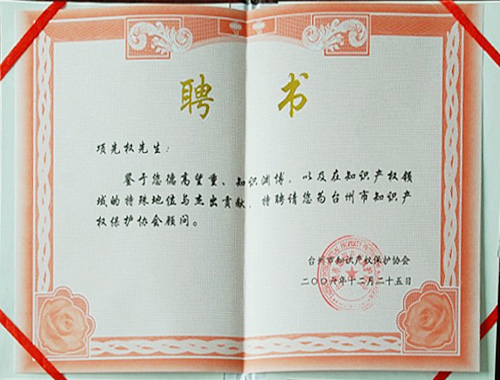 聘 书
项先权先生：
鉴于您德高望重、知识渊博，以及在知识产权领
域的特殊地位与杰出贡献，特聘请您为台州市知识产
权保护协会顾问。
台州市知识产权保护协会
二〇〇六年十二月二十五日